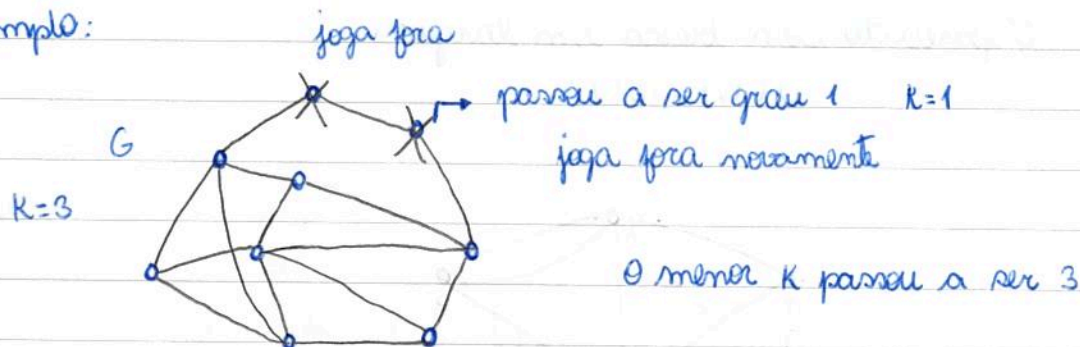 mplo:
joga fora
passou a ser grau 1 K=1
G
joga fora novamente
K=3
O menor K passou a ser 3